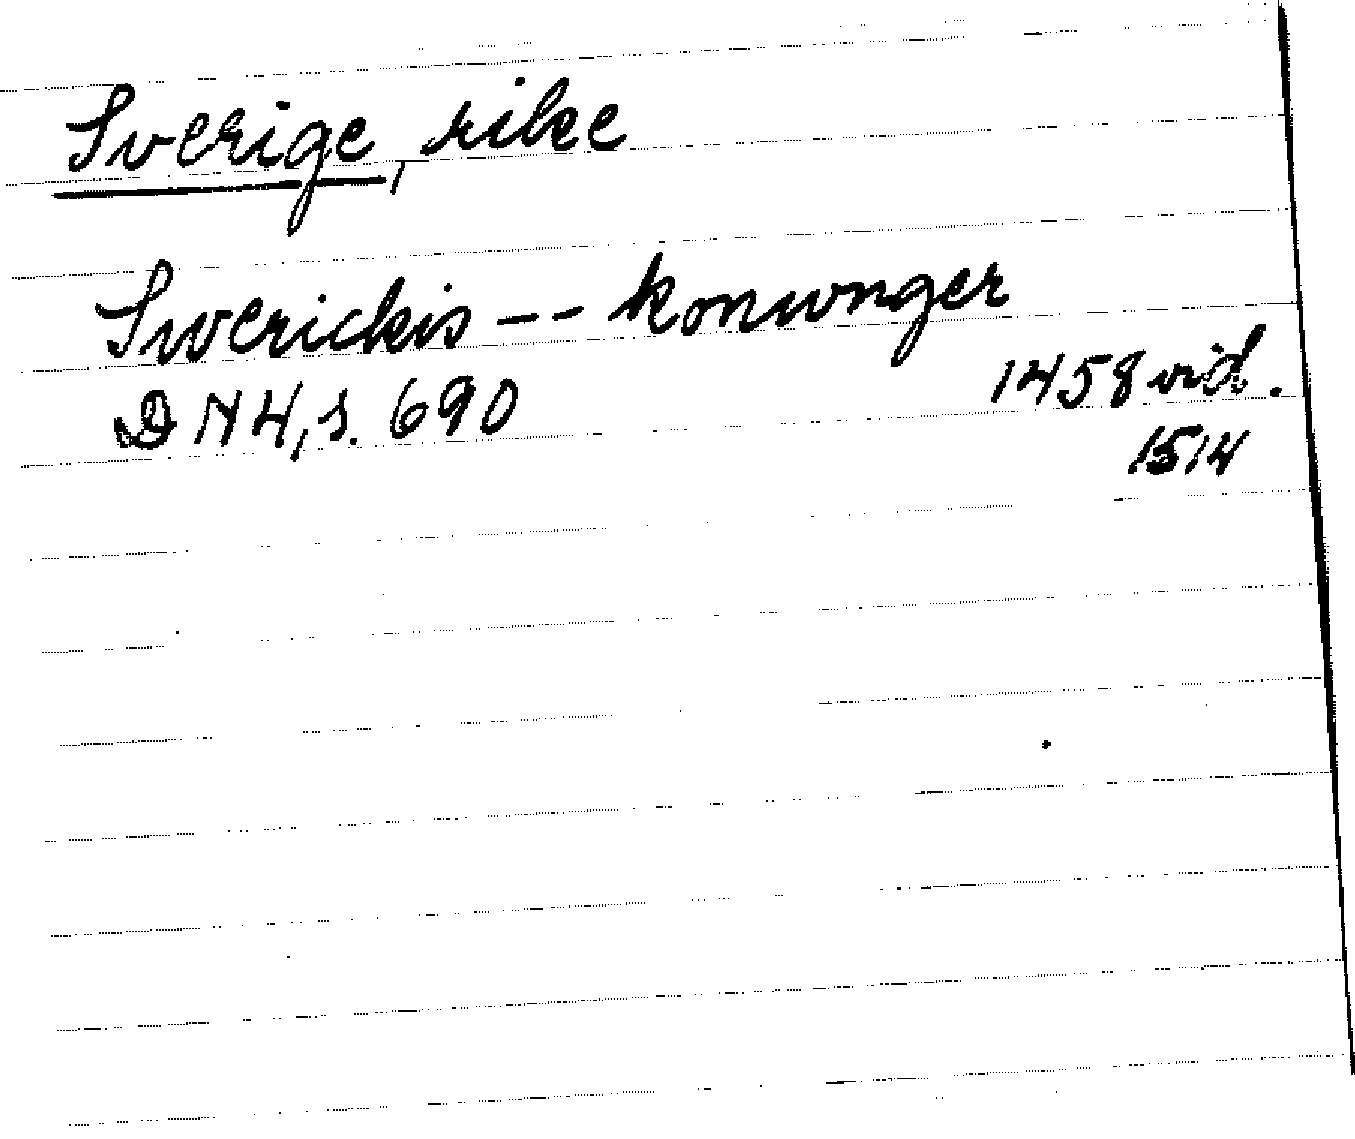 Sverige, rike
Swerickis -- konwnger
DN4, s. 690 1458 vid.
1514